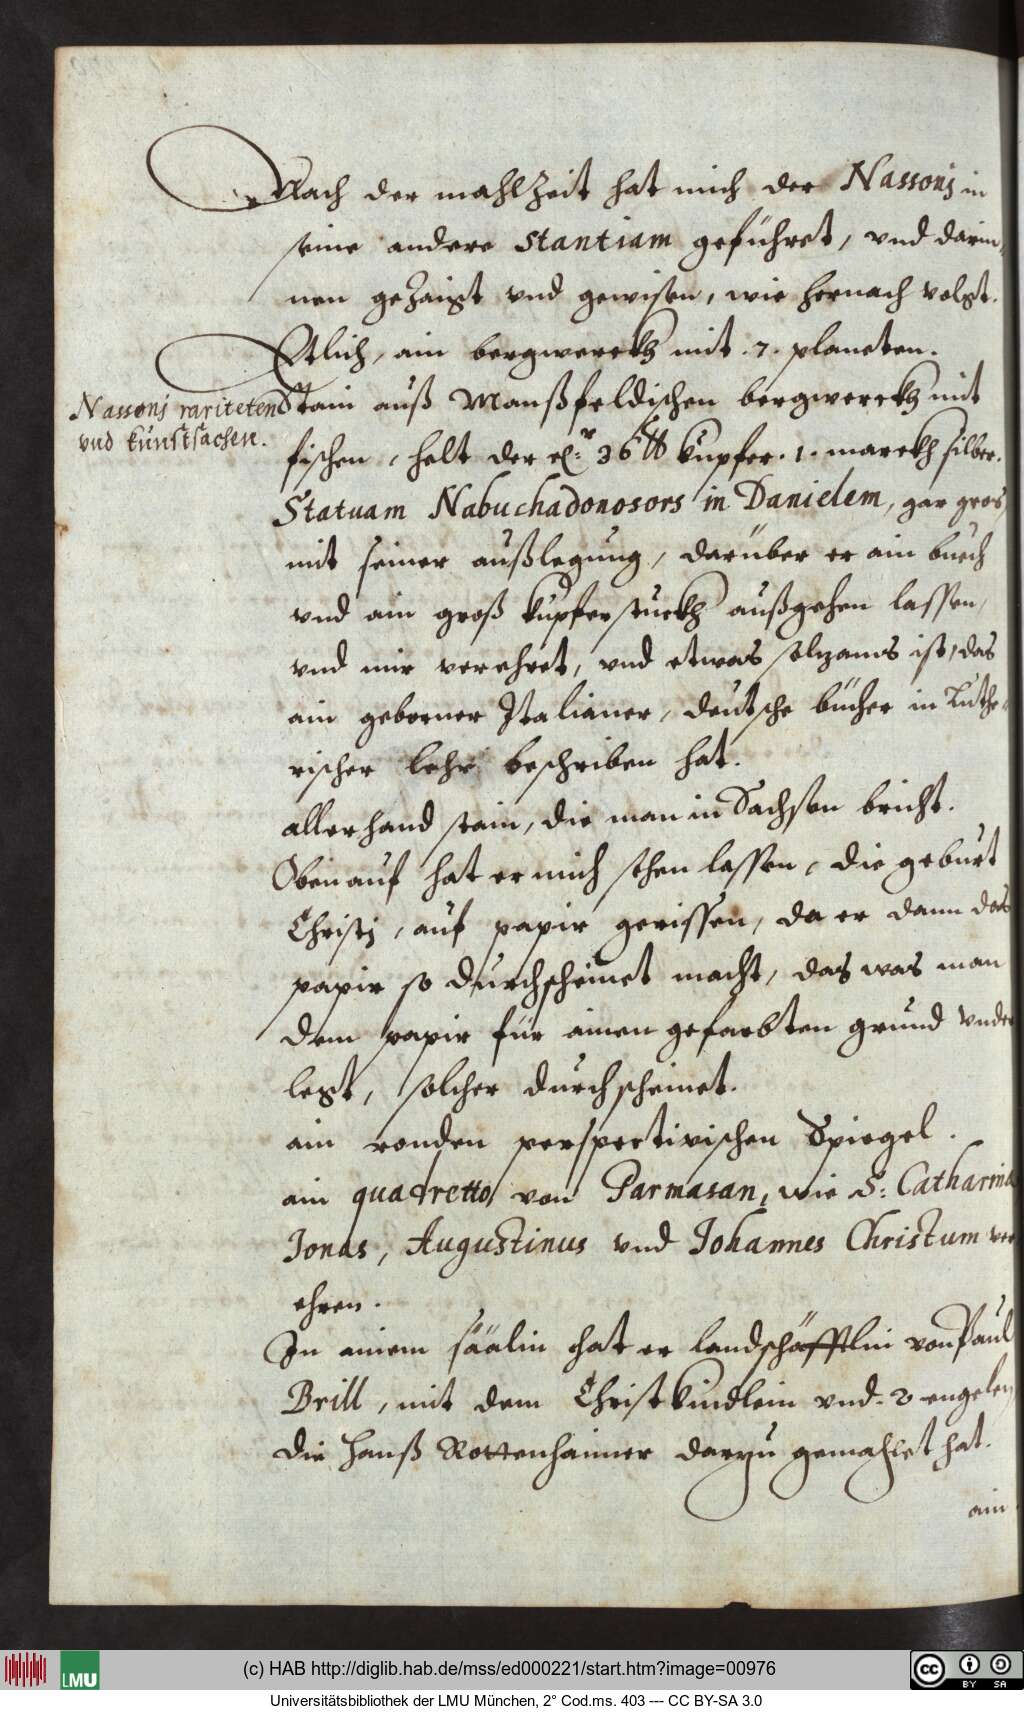 Nach der mahlzeit hat mich der Nassonj in
seine andere stantiam geführet, vnd darin,
nen gezaigt vnd gewisen, wie hernach volgt.
Etlich, ain bergwerckh mit .7. planeten.
Nassonj rariteten
vnd kunstsachen.
Stain auß Manßfeldischen bergwerckh mit
fischen, helt der 36 ℔ kupfer .1. marckh silber.
Statuam Nabuchadonosors in Danielem, gar gros,
mit seiner außlegung, darüber er ain buech
vnd ain groß kupferstuckh außgehen lassen,
vnd mir verehret, vnd etwas selzams ist, das
ain geborner Italianer, deutsche bücher in Luthe,
rischer lehr beschriben hat.
allerhand stain, die man in Sachsen bricht.
Oben auf hat er mich sehen lassen, die geburt
Christj, auf papir gerissen, da er dann das
papir so durchscheinet macht, das was man
dem papir für ainen gefarbten grund vnder
legt, solcher durchscheinet.
ain ronden perspectivischen Spiegel.
ain quadretto von Parmasan, wie S: Catharina
Jonas, Augustinus vnd Johannes Christum ver
ehren.
In ainem säälin hat er landschäfftlin von Paul
Brill, mit dem Christkindlein vnd .2. engelen,
die Hanß Rottenhaimer darzu gemahlet hat.
ain
(c) HAB http://diglib.hab.de/mss/ed000221/start.htm?image=00976
LMU
cc BY SA
Universitätsbibliothek der LMU München, 2° Cod.ms. 403 --- CC BY-SA 3.0